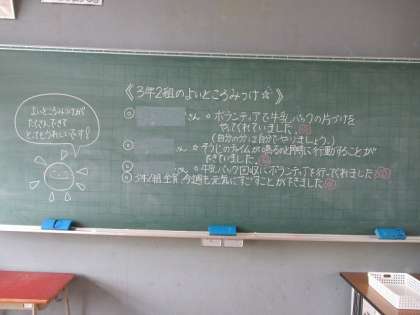 《3年2組のよいところみつけ☆》
よいところみつけが
たくさんできて
とってもうれしいです!
◎ さん。ボランティアで牛乳パックの片づけを
やってくれていました。
(自分の分は自分でやりましょう。)
◎ さん。そうじのチャイムが鳴るのと同時に行動することが
できていました。
◎ さん。牛乳パック回収にボランティアを行ってくれました
◎3年2組全員、今週も元気にすごすことができました